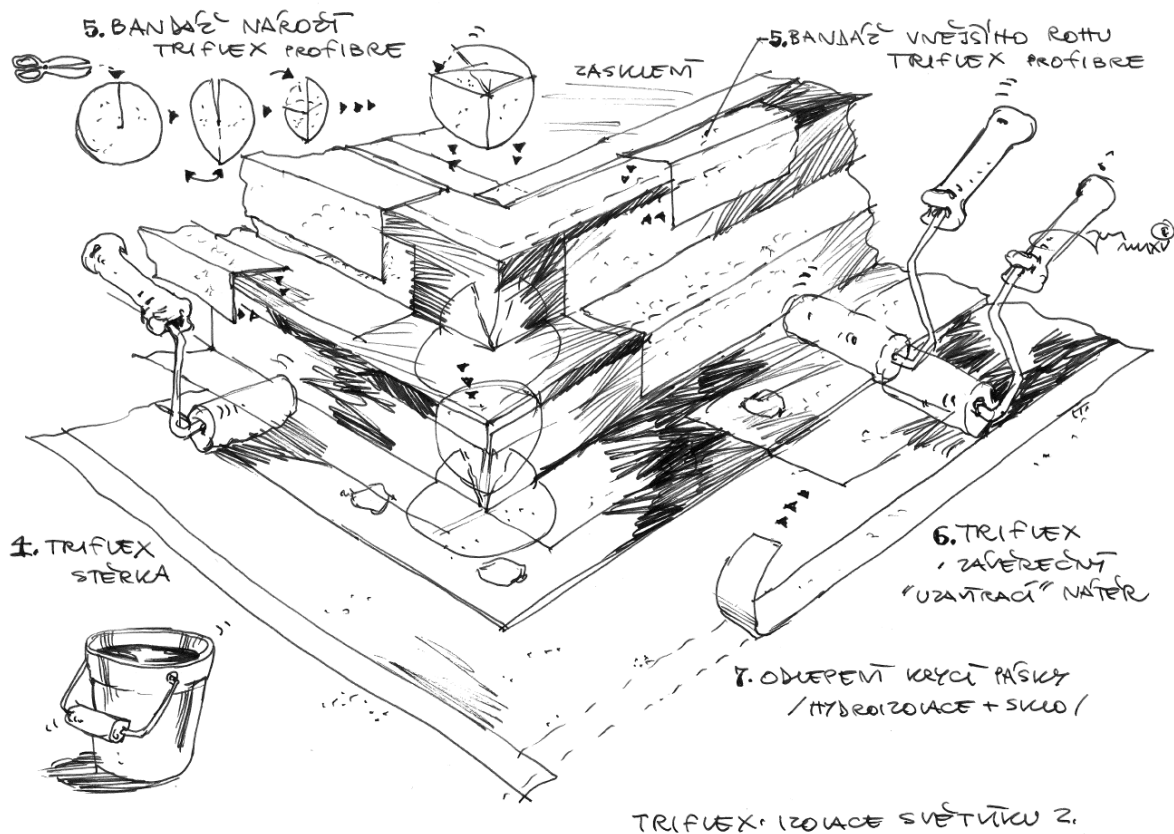 5. BANDÁŽ NÁROŽÍ
TRIFLEX PROFIBRE
ZASKLENÍ
5. BANDÁŽ VNĚJŠÍHO ROHU
TRIFLEX PROFIBRE
4. TRIFLEX
STĚRKA
6. TRIFLEX
ZÁVĚREČNÝ
"UZAVÍRACÍ" NÁTĚR
7. ODLEPENÍ KRYCÍ PÁSKY
/HYDROIZOLACE + SKLO/
TRIFLEX. IZOLACE SVĚTLÍKU 2.